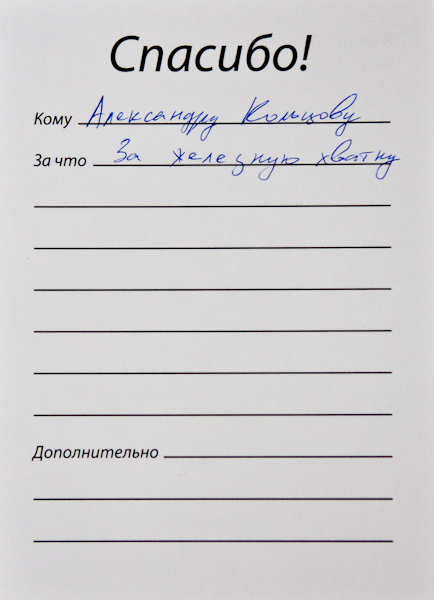 Спасибо!
Кому Александру Кольцову
За что За железную хватку
Дополнительно